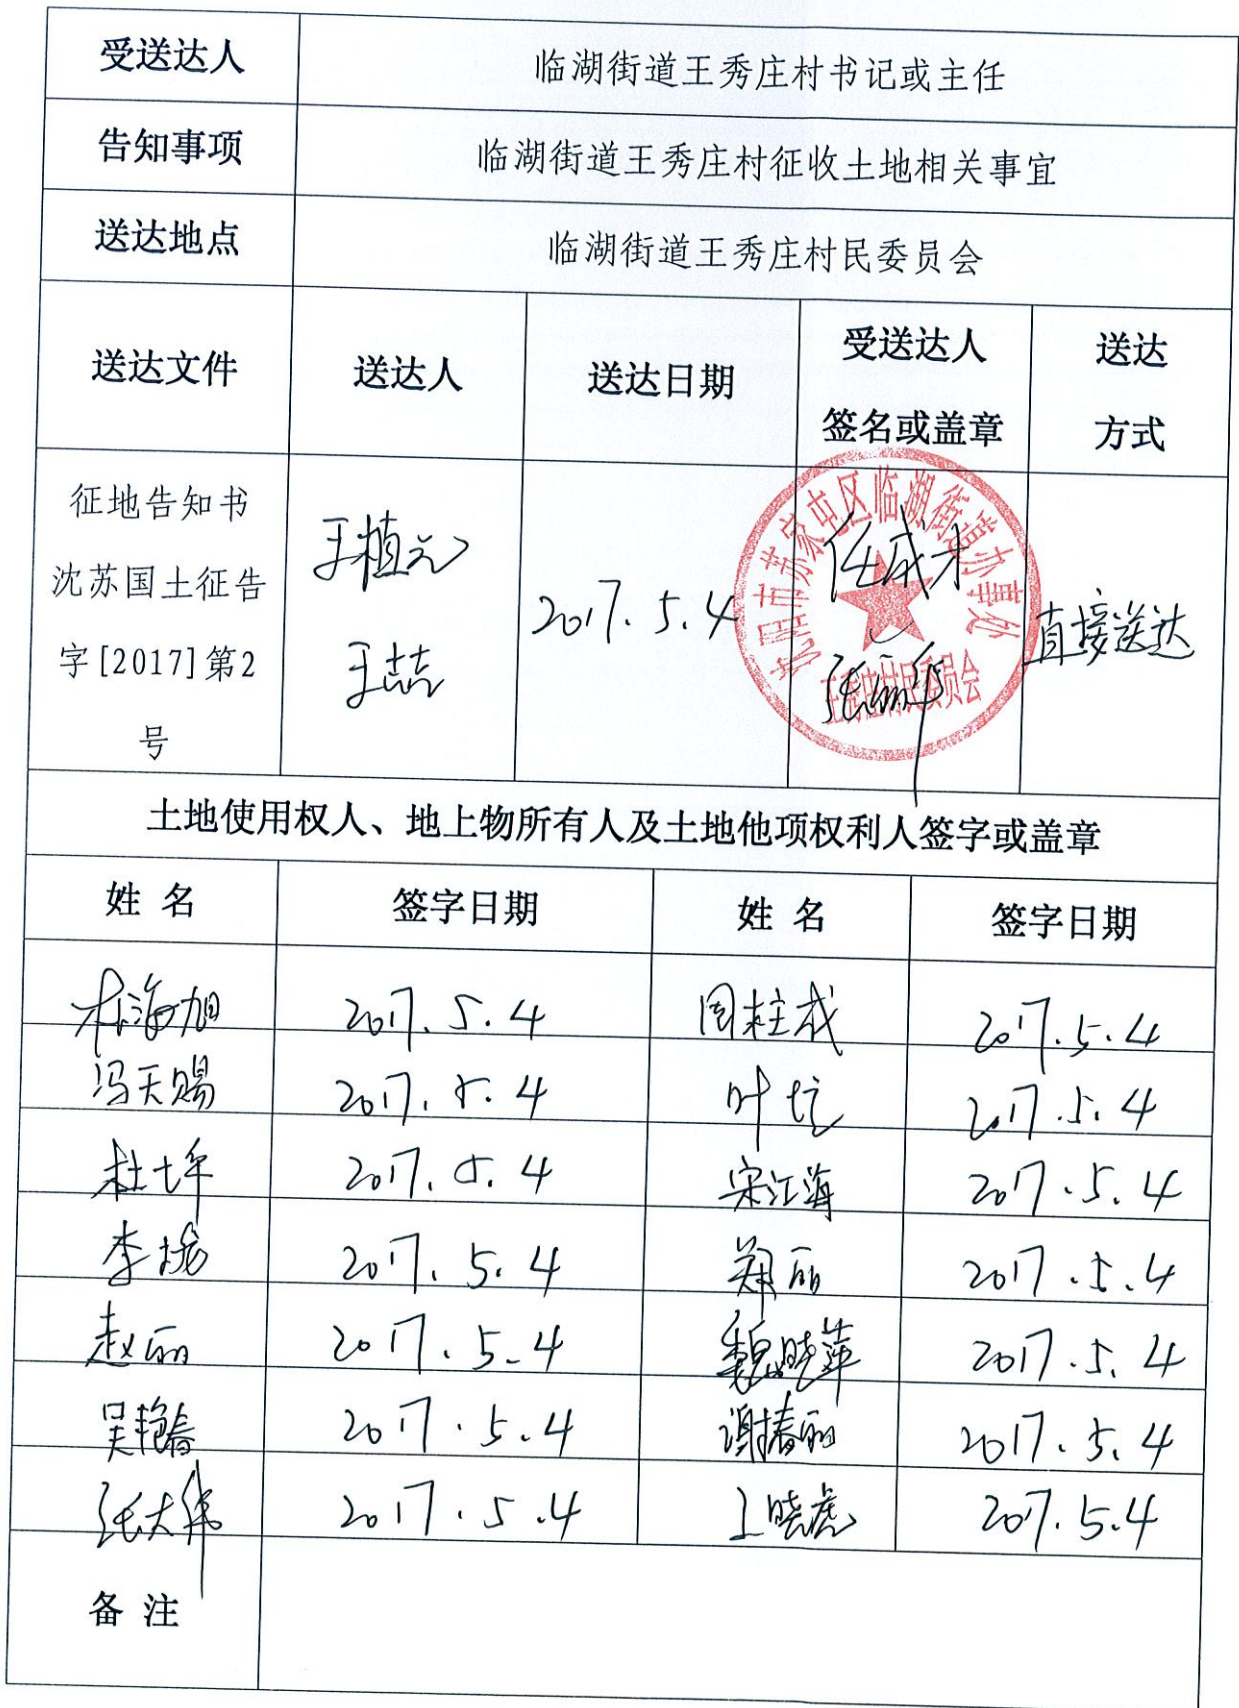 受送达人 临湖街道王秀庄村书记或主任
告知事项 临湖街道王秀庄村征收土地相关事宜
送达地点 临湖街道王秀庄村民委员会
送达文件 送达人 送达日期 受送达人 签名或盖章 送达 方式
征地告知书
沈苏国土征告
字[2017]第2
号
王植元
王喆
2017.5.4
沈阳市苏家屯区临湖街道办事处
王秀庄村民委员会
任成才
直接送达
土地使用权人、地上物所有人及土地他项权利人签字或盖章
姓 名 签字日期 姓 名 签字日期
2017.5.4 周柱成 2017.5.4
冯天赐 2017.5.4 叶 2017.5.4
杜 2017.5.4 宋江海 2017.5.4
李 2017.5.4 郑丽 2017.5.4
赵丽 2017.5.4 魏晓萍 2017.5.4
吴艳春 2017.5.4 谢春丽 2017.5.4
张大伟 2017.5.4 王晓虎 207.5.4
备 注